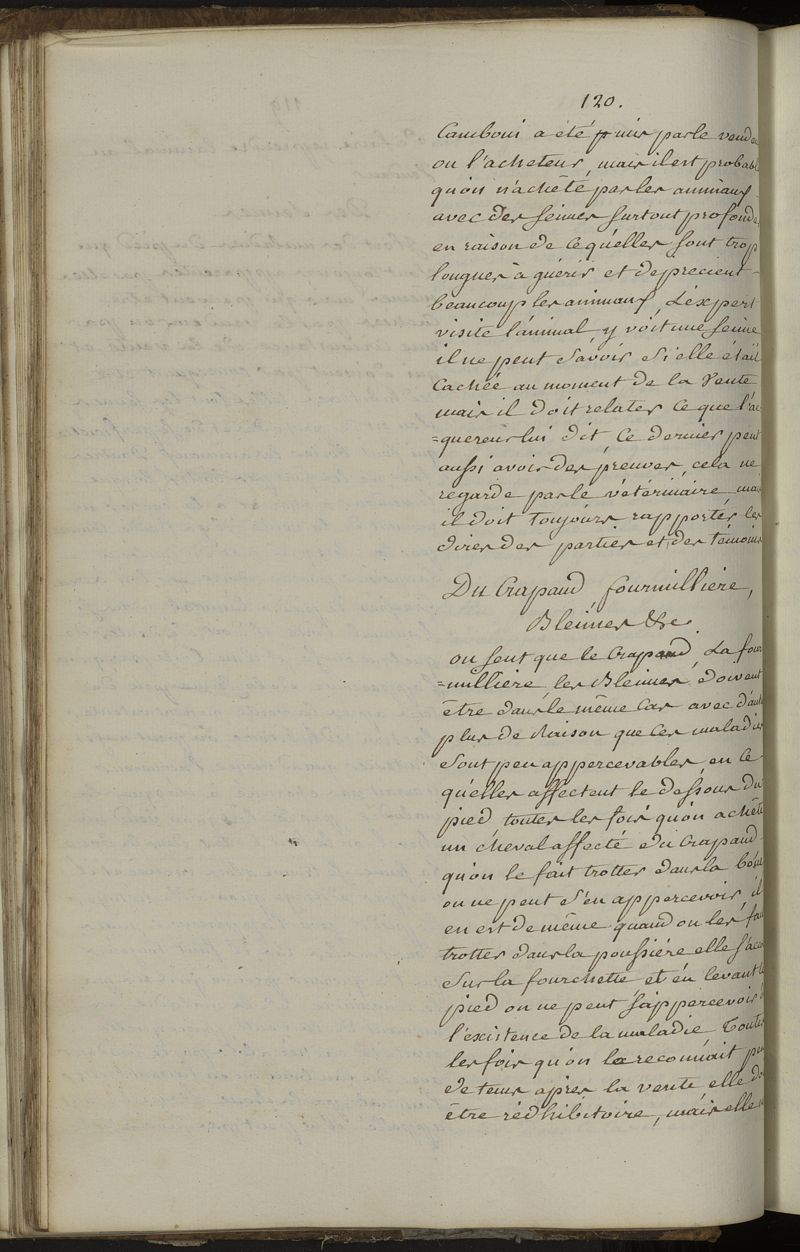 120.
Camboui a été mis par le vende
ou l'acheteur, mais il est probabl
qu'on n'achéte pas les animaux
avec des seimes surtout profonde
en raison de ce qu'elles sont trop
longues à guérir et deprecient
beaucoup les animaux, L'éxpert
visite l'animal y voit une seime
il ne peut savoir si elle était
Cachée au moment de la Vente
mais il doit relater ce que l'ac
=quereur lui dit Ce dernier peut
aussi avoir des preuves, cela ne
regarde pas le vétérinaire mai
il doit toujours rapporter les
dires des parties et des témoins
Du Crapaud, fourmilliere,
Bleimes &c.
on sent que le Crapaud, La four
=milliere, les Bleimes, doivent
être dans le même Cas avec d'aut
plus de Raison que Ces maladies
sont peu appercevables, en Ce
qu'elles affectent le dessous du
pied toutes les fois qu'on achéte
un cheval affecté du Crapaud
qu'on le fait trotter dans la boue
on ne peut s'en appercevoir, il
en est de même quand on les fai
trotter dans la poussiére elle s'acc
sur la fourchette et en levant le
pied on ne peut s'appercevoir
l'existence de la maladie Toutes
les fois qu'on la reconnait peu
de tems aprés la vente, elle do
être rédhibitoire, mais elle